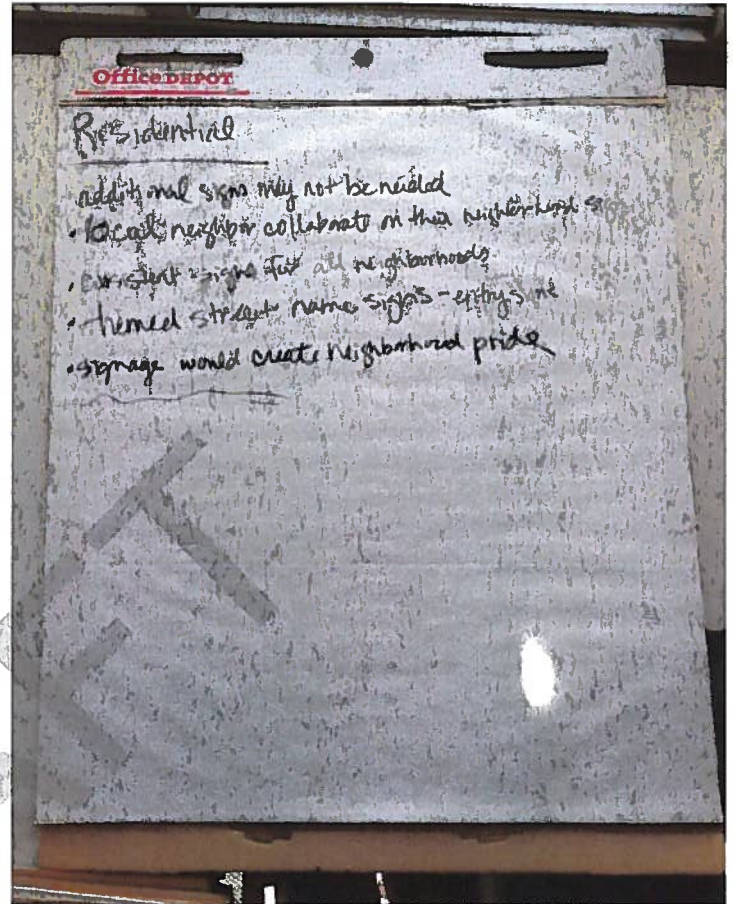 Office DEPOT
Residential
additional signs may not be needed
• local neighbor collaborate on their neighborhood
• consistent signs for all neighborhoods
• themed street name signs - entry
• signage would create neighborhood pride